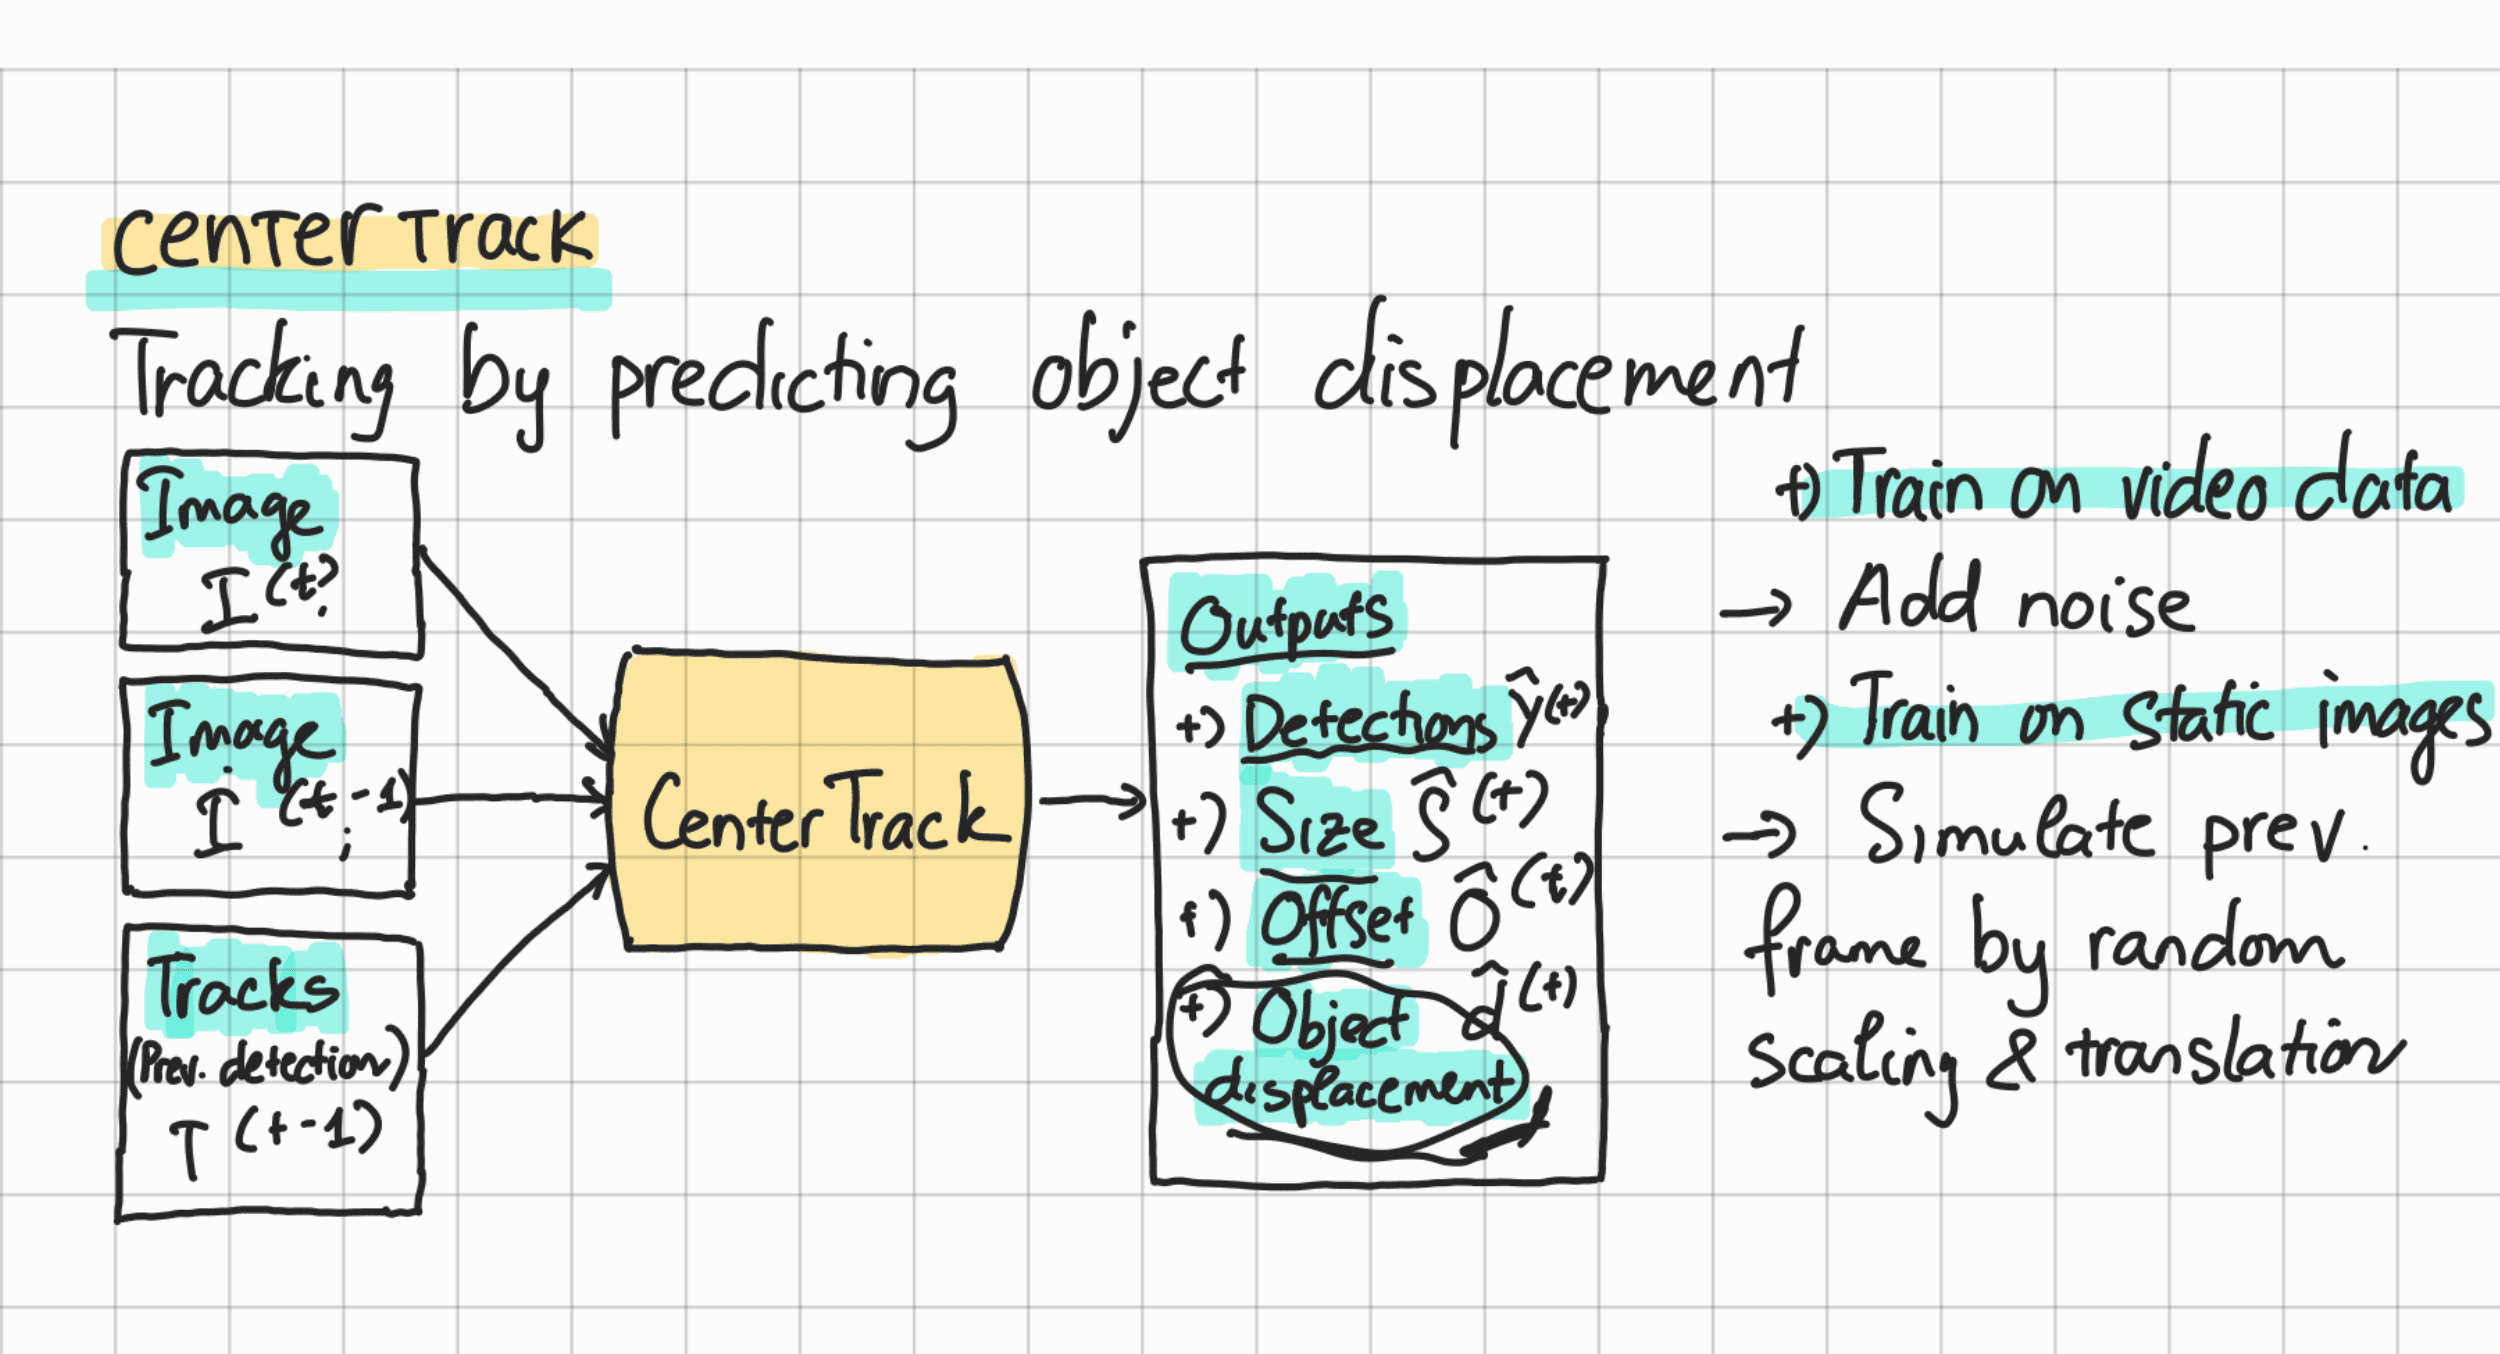 CenterTrack
Tracking by predicting object displacement
Image
I^(t);
Image
I^(t-1);
Tracks
(Prev. detection)
T^(t-1)
CenterTrack
Outputs
+) Detections Ŷ^(t)
+) Size Ŝ^(t)
+) Offset Ô^(t)
+) Object d̂^(t)
displacement
+) Train on video data
→ Add noise
+) Train on static images
→ Simulate prev.
frame by random
scaling & translation